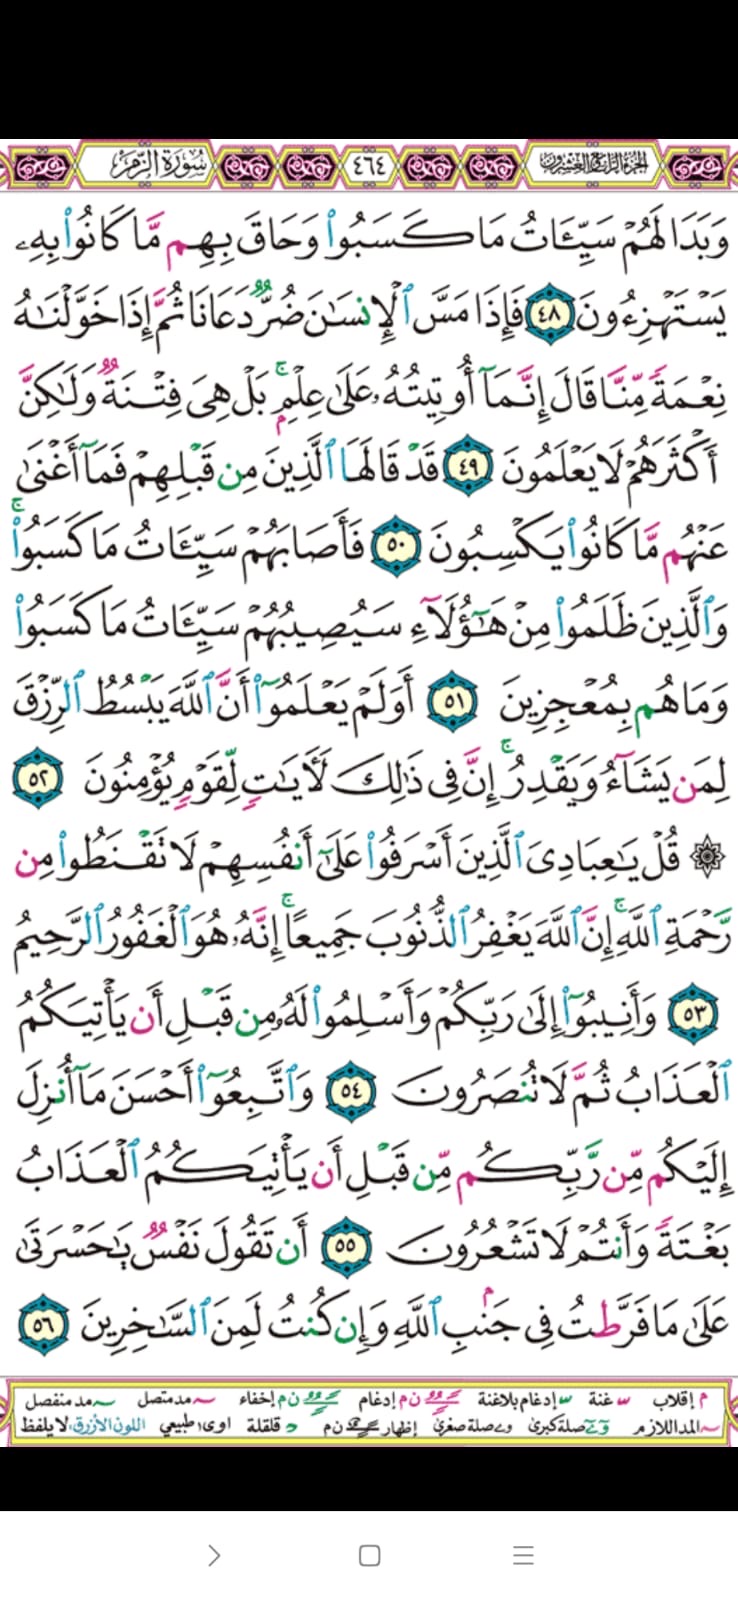 الجزء الرابع والعشرون ٤٦٤ سُورَةُ الزُّمَر
وَبَدَا لَهُمْ سَيِّـَٔاتُ مَا كَسَبُوا۟ وَحَاقَ بِهِم مَّا كَانُوا۟ بِهِۦ
يَسْتَهْزِءُونَ ٤٨ فَإِذَا مَسَّ ٱلْإِنسَـٰنَ ضُرٌّ دَعَانَا ثُمَّ إِذَا خَوَّلْنَـٰهُ
نِعْمَةً مِّنَّا قَالَ إِنَّمَآ أُوتِيتُهُۥ عَلَىٰ عِلْمٍۭ ۚ بَلْ هِىَ فِتْنَةٌ وَلَـٰكِنَّ
أَكْثَرَهُمْ لَا يَعْلَمُونَ ٤٩ قَدْ قَالَهَا ٱلَّذِينَ مِن قَبْلِهِمْ فَمَآ أَغْنَىٰ
عَنْهُم مَّا كَانُوا۟ يَكْسِبُونَ ٥٠ فَأَصَابَهُمْ سَيِّـَٔاتُ مَا كَسَبُوا۟ ۚ
وَٱلَّذِينَ ظَلَمُوا۟ مِنْ هَـٰٓؤُلَآءِ سَيُصِيبُهُمْ سَيِّـَٔاتُ مَا كَسَبُوا۟
وَمَا هُم بِمُعْجِزِينَ ٥١ أَوَلَمْ يَعْلَمُوٓا۟ أَنَّ ٱللَّهَ يَبْسُطُ ٱلرِّزْقَ
لِمَن يَشَآءُ وَيَقْدِرُ ۚ إِنَّ فِى ذَٰلِكَ لَـَٔايَـٰتٍ لِّقَوْمٍ يُؤْمِنُونَ ٥٢
۞ قُلْ يَـٰعِبَادِىَ ٱلَّذِينَ أَسْرَفُوا۟ عَلَىٰٓ أَنفُسِهِمْ لَا تَقْنَطُوا۟ مِن
رَّحْمَةِ ٱللَّهِ ۚ إِنَّ ٱللَّهَ يَغْفِرُ ٱلذُّنُوبَ جَمِيعًا ۚ إِنَّهُۥ هُوَ ٱلْغَفُورُ ٱلرَّحِيمُ
٥٣ وَأَنِيبُوٓا۟ إِلَىٰ رَبِّكُمْ وَأَسْلِمُوا۟ لَهُۥ مِن قَبْلِ أَن يَأْتِيَكُمُ
ٱلْعَذَابُ ثُمَّ لَا تُنصَرُونَ ٥٤ وَٱتَّبِعُوٓا۟ أَحْسَنَ مَآ أُنزِلَ
إِلَيْكُم مِّن رَّبِّكُم مِّن قَبْلِ أَن يَأْتِيَكُمُ ٱلْعَذَابُ
بَغْتَةً وَأَنتُمْ لَا تَشْعُرُونَ ٥٥ أَن تَقُولَ نَفْسٌ يَـٰحَسْرَتَىٰ
عَلَىٰ مَا فَرَّطتُ فِى جَنۢبِ ٱللَّهِ وَإِن كُنتُ لَمِنَ ٱلسَّـٰخِرِينَ ٥٦
م إقلاب غنة إدغام بلاغنة ن م إدغام ن م إخفاء مد متصل مد منفصل
المد اللازم صلة كبرى صلة صغرى إظهار ن م د قلقلة اوى طبيعي اللون الأزرق لا يلفظ